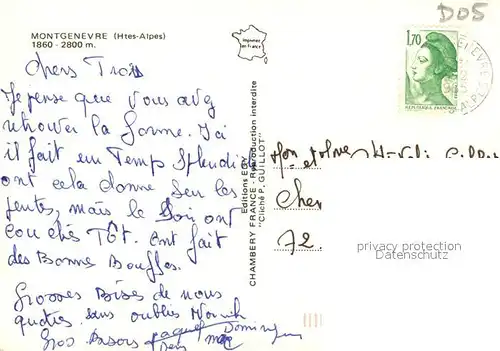 MONTGENEVRE (Htes-Alpes)
1860 - 2800 m.
D05
1,70
REPUBLIQUE FRANÇAISE
Chers Trois
Je pense que vous avez
retrouver la forme. Ici
il fait un Temps Splendide
ont cela donne sur les
pentes, mais le Soir ont
couchés Tôt. Ont fait
des Bonnes Bouffes.
Grosses Bises de nous
quatres sans oublier
Gros
Editions E
CHAMBERY FRANCE - Reproduction interdite
"Cliché P. GUILLOT"
Mon
Cher
72.
privacy protection
Datenschutz